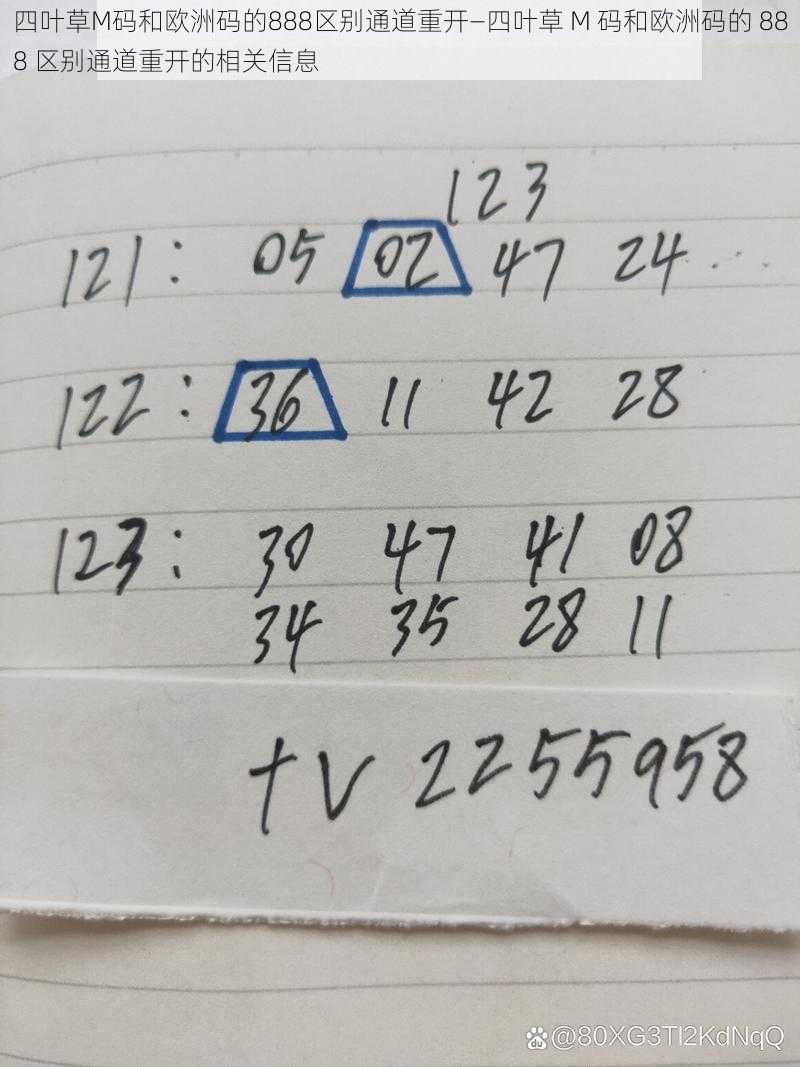 四叶草M码和欧洲码的888区别通道重开—四叶草 M 码和欧洲码的 88
8 区别通道重开的相关信息
123
121: 05 02 47 24 ...
122: 36 11 42 28
123: 30 47 41 08
34 35 28 11
+V 2255958
Bai du @80XG3Tl2KdNqQ